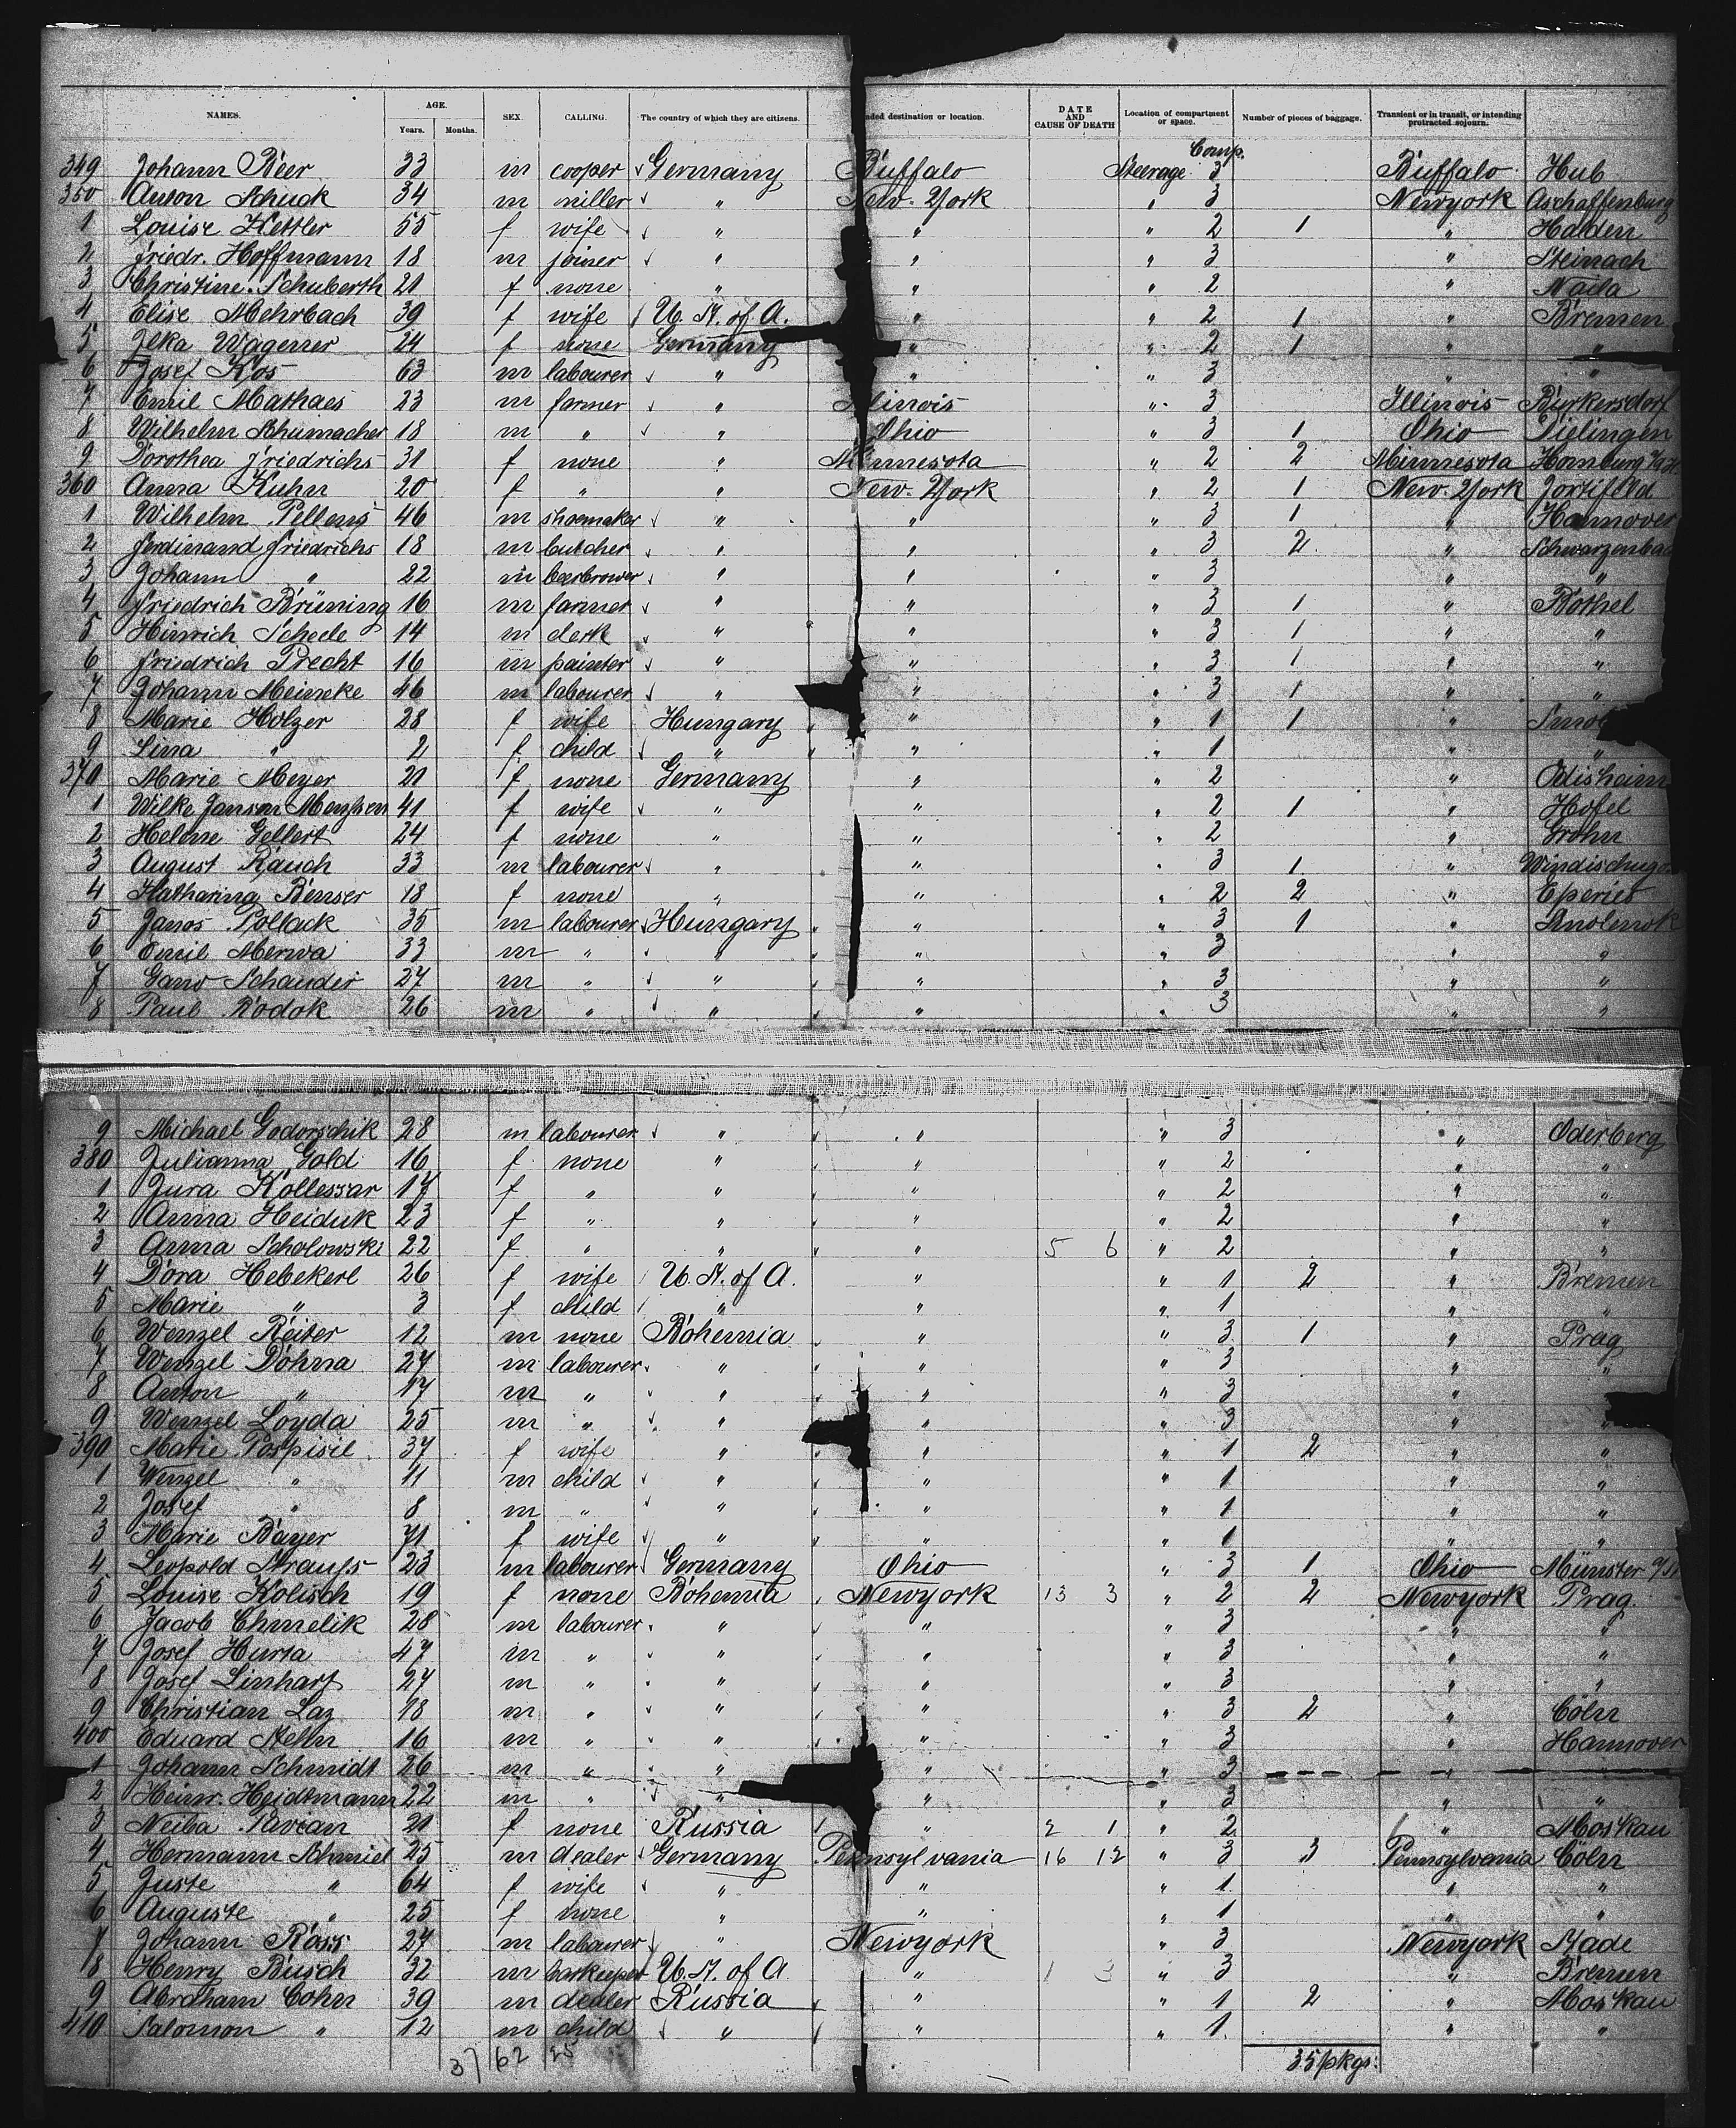 NAMES. AGE. Years. Months. SEX. CALLING. The country of which they are citizens. nded destination or location. DATE AND CAUSE OF DEATH Location of compartment or space. Number of pieces of baggage. Transient or in transit, or intending protracted sojourn.
Comp.
349 Johann Beer 33 m cooper Germany Buffalo Steerage 3 Buffalo Hub
350 Anton Schuck 34 m miller " New-York " 3 Newyork Aschaffenburg
1 Louise Kettler 55 f wife " " " 2 1 " Halden
2 Friedr. Hoffmann 18 m joiner " " " 3 " Steinach
3 Christine Schuberth 21 f none " " " 2 " Naila
4 Elise Mehrbach 39 f wife U. St. of A. " " 2 1 " Bremen
5 Ilka Wagener 24 f none Germany " " 2 1 " "
6 Josef Kos 63 m labourer " " " 3 " "
7 Emil Mathaes 23 m farmer " Illinois " 3 Illinois Burkersdorf
8 Wilhelm Schumacher 18 m " " Ohio " 3 1 Ohio Dielingen
9 Dorothea Friedrichs 31 f none " Minnesota " 2 2 Minnesota Homburg
360 Anna Kuhn 20 f " " New-York " 2 1 New-York
1 Wilhelm Pellens 46 m shoemaker " " " 3 1 " Hannover
2 Ferdinand Friedrichs 18 m butcher " " " 3 2 " Schwarzenbac
3 Johann " 22 m beerbrower " " " 3 " "
4 Friedrich Brüning 16 m farmer " " " 3 1 " Bothel
5 Hinrich Scheele 14 m clerk " " " 3 1 " "
6 Friedrich Precht 16 m painter " " " 3 1 " "
7 Johann Meineke 46 m labourer " " " 3 1 " "
8 Marie Holzer 28 f wife Hungary " " 1 1 "
9 Lina " 2 f child " " " 1 " "
370 Marie Meyer 21 f none Germany " " 2 " Odisheim
1 Wilke Janson Menssen 41 f wife " " " 2 1 " Hofel
2 Helene Gellert 24 f none " " " 2 " Grohn
3 August Rauch 33 m labourer " " " 3 1 "
4 Katharina Benser 18 f none " " " 2 2 " Eperies
5 Janos Pollack 35 m labourer Hungary " " 3 1 "
6 Emil Merwa 33 m " " " " 3 " "
7 Gano Schaudir 27 m " " " " 3 " "
8 Paul Rodok 26 m " " " " 3 " "
9 Michael Godorschik 28 m labourer " " " 3 " Oderberg
380 Julianna Gold 16 f none " " " 2 " "
1 Jura Kollessar 17 f " " " " 2 " "
2 Anna Heiduk 23 f " " " " 2 " "
3 Anna Scholowski 22 f " " " 5 6 " 2 " "
4 Dora Hebekerl 26 f wife U. St. of A. " " 1 2 " Bremen
5 Marie " 3 f child " " " 1 " "
6 Wenzel Reiter 12 m none Bohemia " " 3 1 " Prag
7 Wenzel Dohna 27 m labourer " " " 3 " "
8 Anton " 17 m " " " " 3 "
9 Wenzel Loyda 25 m " " " " 3 " "
390 Marie Pospisil 37 f wife " " " 1 2 " "
1 Wenzel " 11 m child " " " 1 " "
2 Josef " 8 m " " " " 1 " "
3 Marie Bayer 71 f wife " " " 1 " "
4 Leopold Strauss 23 m labourer Germany Ohio " 3 1 Ohio Münster
5 Louise Kolisch 19 f none Bohemia Newyork 13 3 " 2 2 Newyork Prag
6 Jacob Chmelik 28 m labourer " " " 3 " "
7 Josef Hurta 47 m " " " " 3 " "
8 Josef Linhart 27 m " " " " 3 " "
9 Christian Laz 18 m " " " " 3 2 " Cöln
400 Eduard Stelln 16 m " " " " 3 " Hannover
1 Johann Schmidt 26 m " " " " 3 " "
2 Heinr. Heidtmann 22 m " " " " 3 " "
3 Neiba Pavian 21 f none Russia " 2 1 " 2 " Moskau
4 Hermann Schmiel 25 m dealer Germany Pennsylvania 16 12 " 3 3 Pennsylvania Cöln
5 Juste " 64 f wife " " " 1 " "
6 Auguste " 25 f none " " " 1 " "
7 Johann Ross 27 m labourer " Newyork " 3 Newyork Stade
8 Henry Busch 32 m barkeeper U. St. of A " 1 3 " 3 " Bremen
9 Abraham Cohn 39 m dealer Russia " " 1 2 " Moskau
410 Salomon " 12 m child " " " 1 " "
37 62 25 35 pkgs: